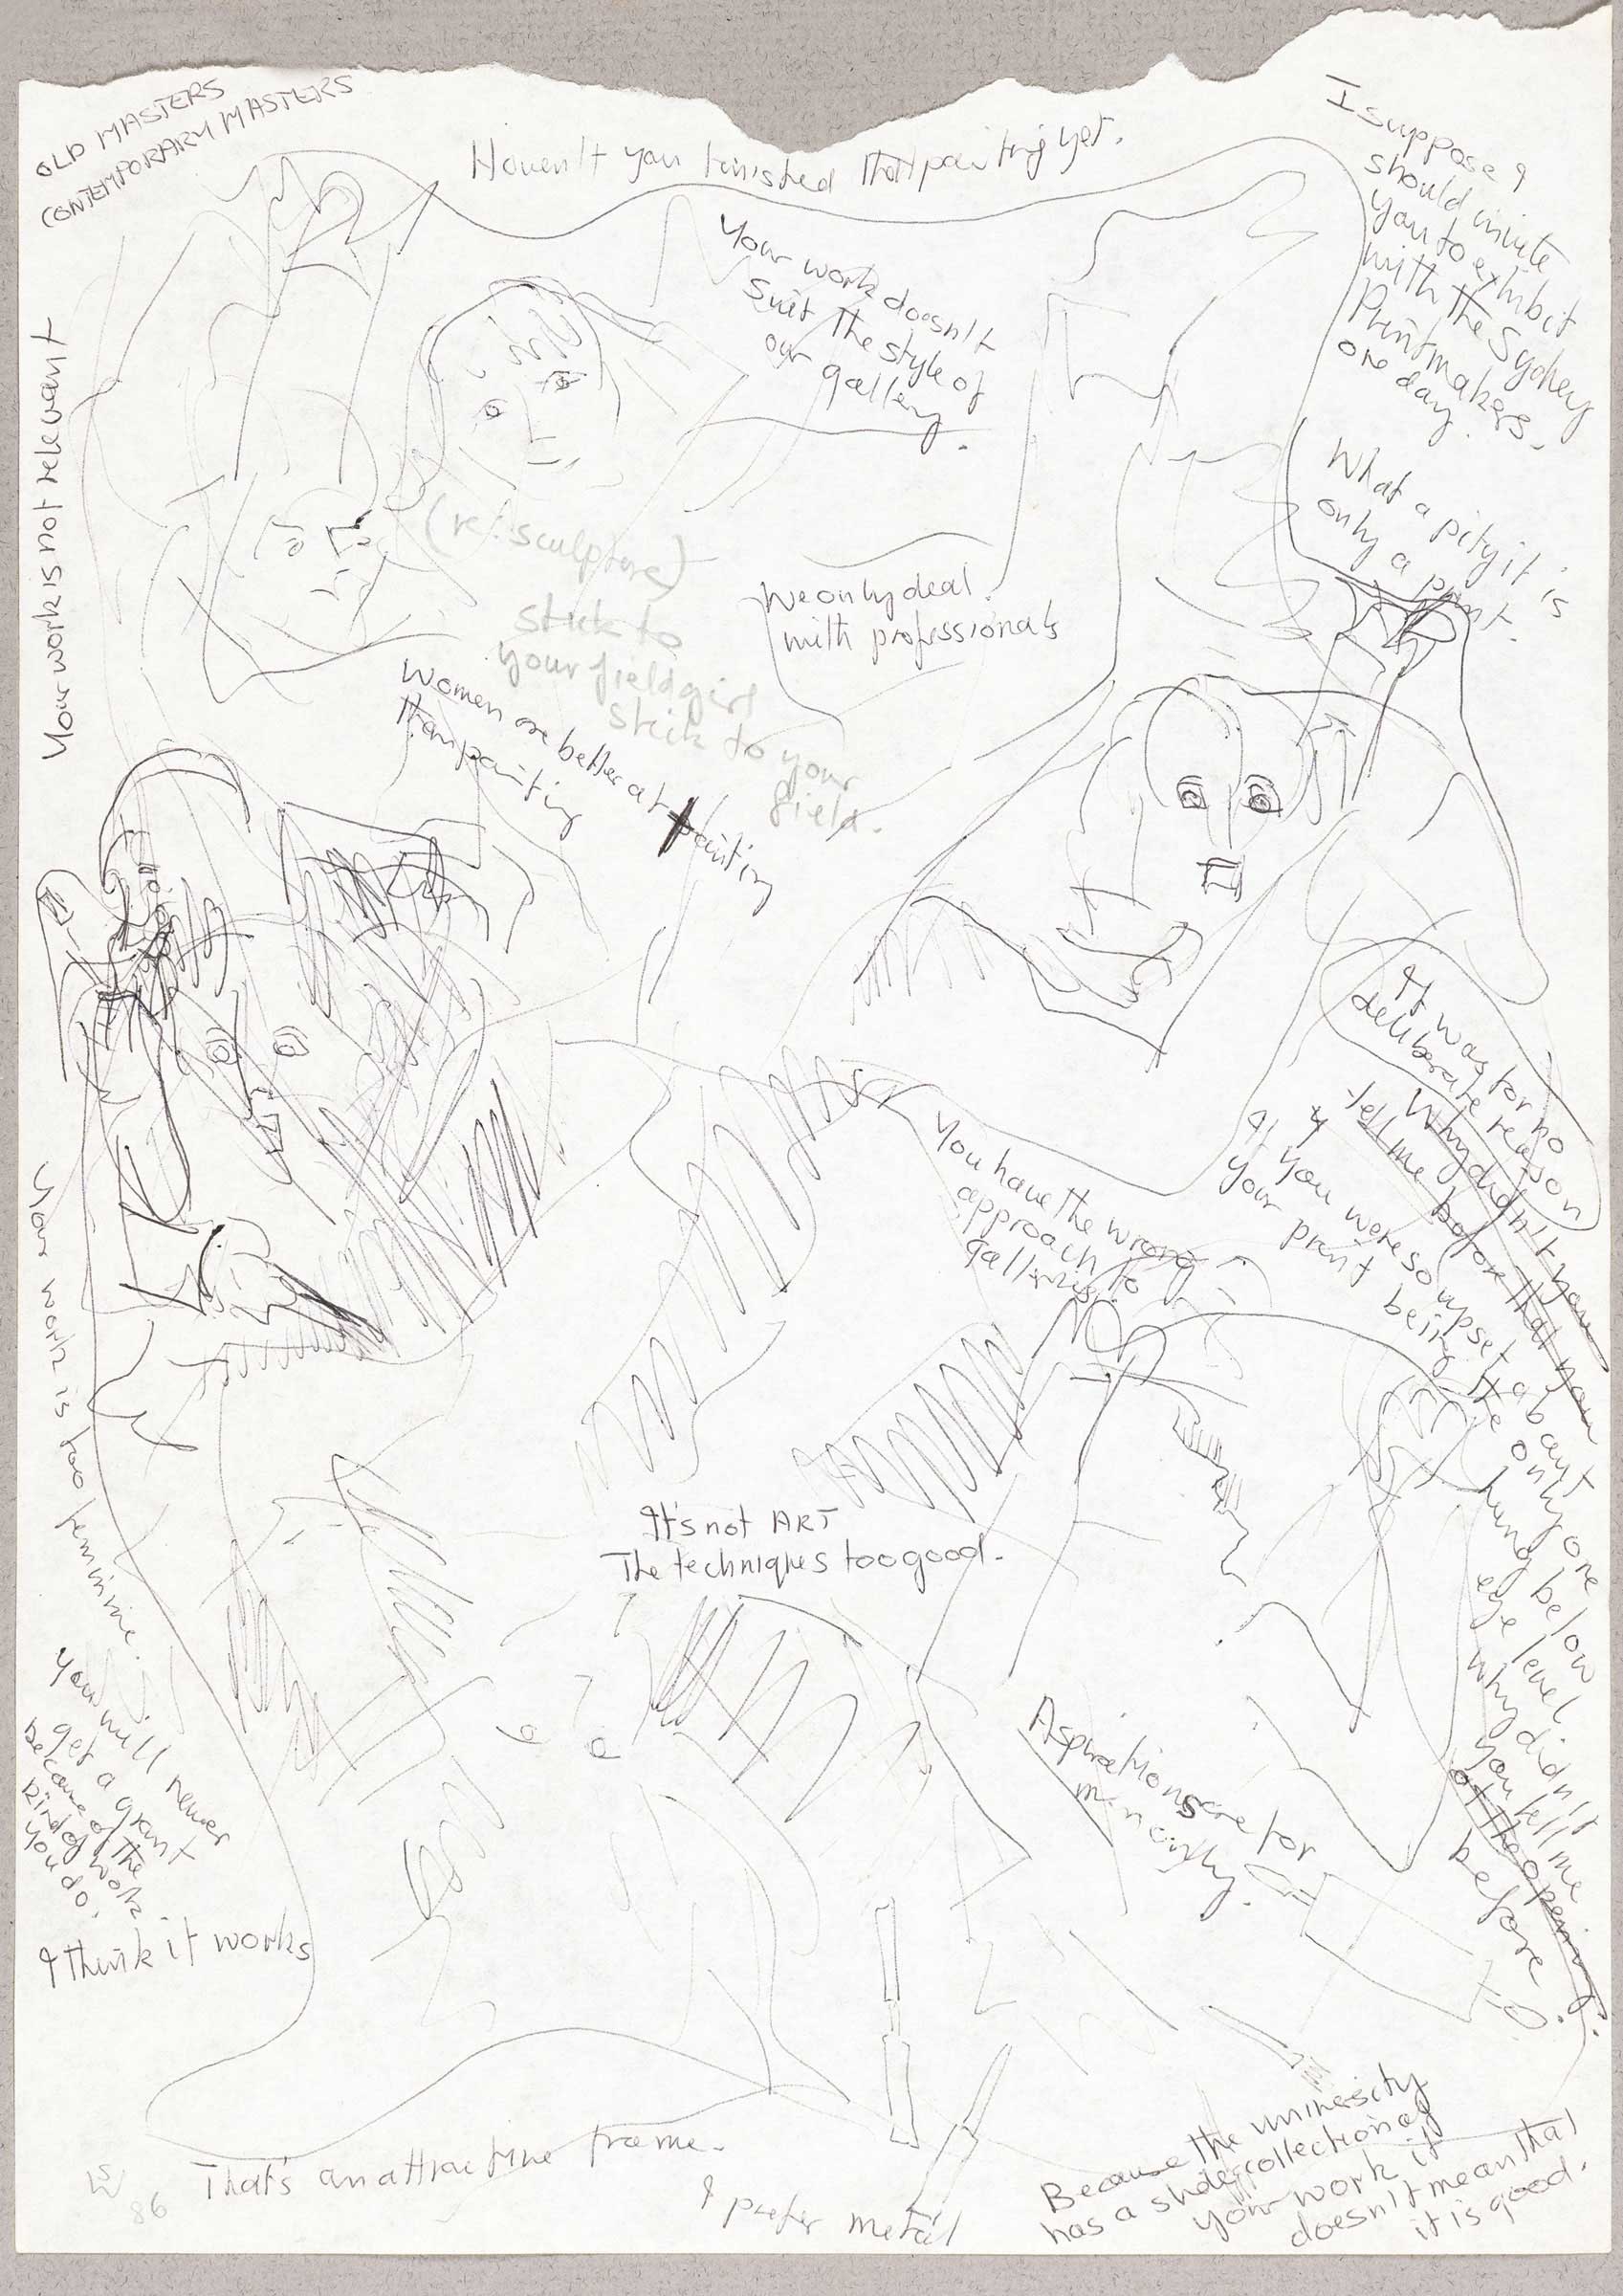 OLD MASTERS
CONTEMPORARY MASTERS
Haven't you finished that painting yet.
I suppose I
should invite
you to exhibit
with the Sydney
Printmakers.
one day.
Your work doesn't
suit the style of
our gallery.
Your work is not relevant
What a pity it is
only a print.
(re: sculpture)
stick to
your field girl
stick to your
field.
We only deal
with professionals
Women are better at painting
than painting
It was for no
deliberate reason
Why didn't you
tell me before that you
If you were so upset about
your print being the only one
hung below
eye level.
why didn't
you tell me
at the opening.
before
?
You have the wrong
approach to
galleries.
Your work is too feminine.
It's not ART
The techniques too good.
You will never
get a grant
because of the
kind of work
you do.
Aspirations are for
men only.
I think it works
That's an attractive frame.
I prefer metal
Because the university
has a slide collection of
your work it
doesn't mean that
it is good.
SW
86